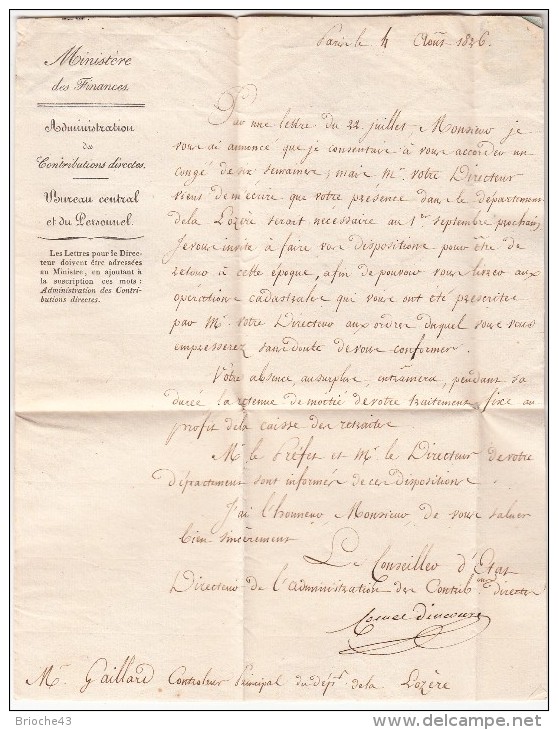 Ministère
des Finances.
Administration
des
Contributions directes.
Bureau central
et du Personnel.
Les Lettres pour le Direc-
teur doivent être adressées
au Ministre, en ajoutant à
la suscription ces mots :
Administration des Contri-
butions directes.
Paris le 4 Août 1826.
Par une lettre du 22 juillet, Monsieur je
vous ai annoncé que je consentais à vous accorder un
congé de six semaines; mais Mr. votre Directeur
viens de m'ecrire que votre présence dans le département
de la Lozère serait necessaire au 1er septembre prochain,
Je vous invite à faire vos dispositions pour être de
retour à cette époque, afin de pouvoir vous livrer aux
opérations cadastrales qui vous ont été prescrites
par Mr. votre Directeur aux ordres duquel vous vous
empresserez sans doute de vous conformer.
Votre absence, au surplus, entrainera, pendant sa
durée la retenue de moitié de votre traitement fixe au
profit de la caisse des retraites
Mr. le Préfet et Mr. le Directeur de votre
département sont informés de ces dispositions
J'ai l'honneur, Monsieur, de vous saluer
bien sincèrement
Le Conseiller d'Etat
Directeur de l'administration des Contribons directes
Mr. Gaillard Controleur Principal du dépt. de la Lozère
Brioche43
www.delcampe.net